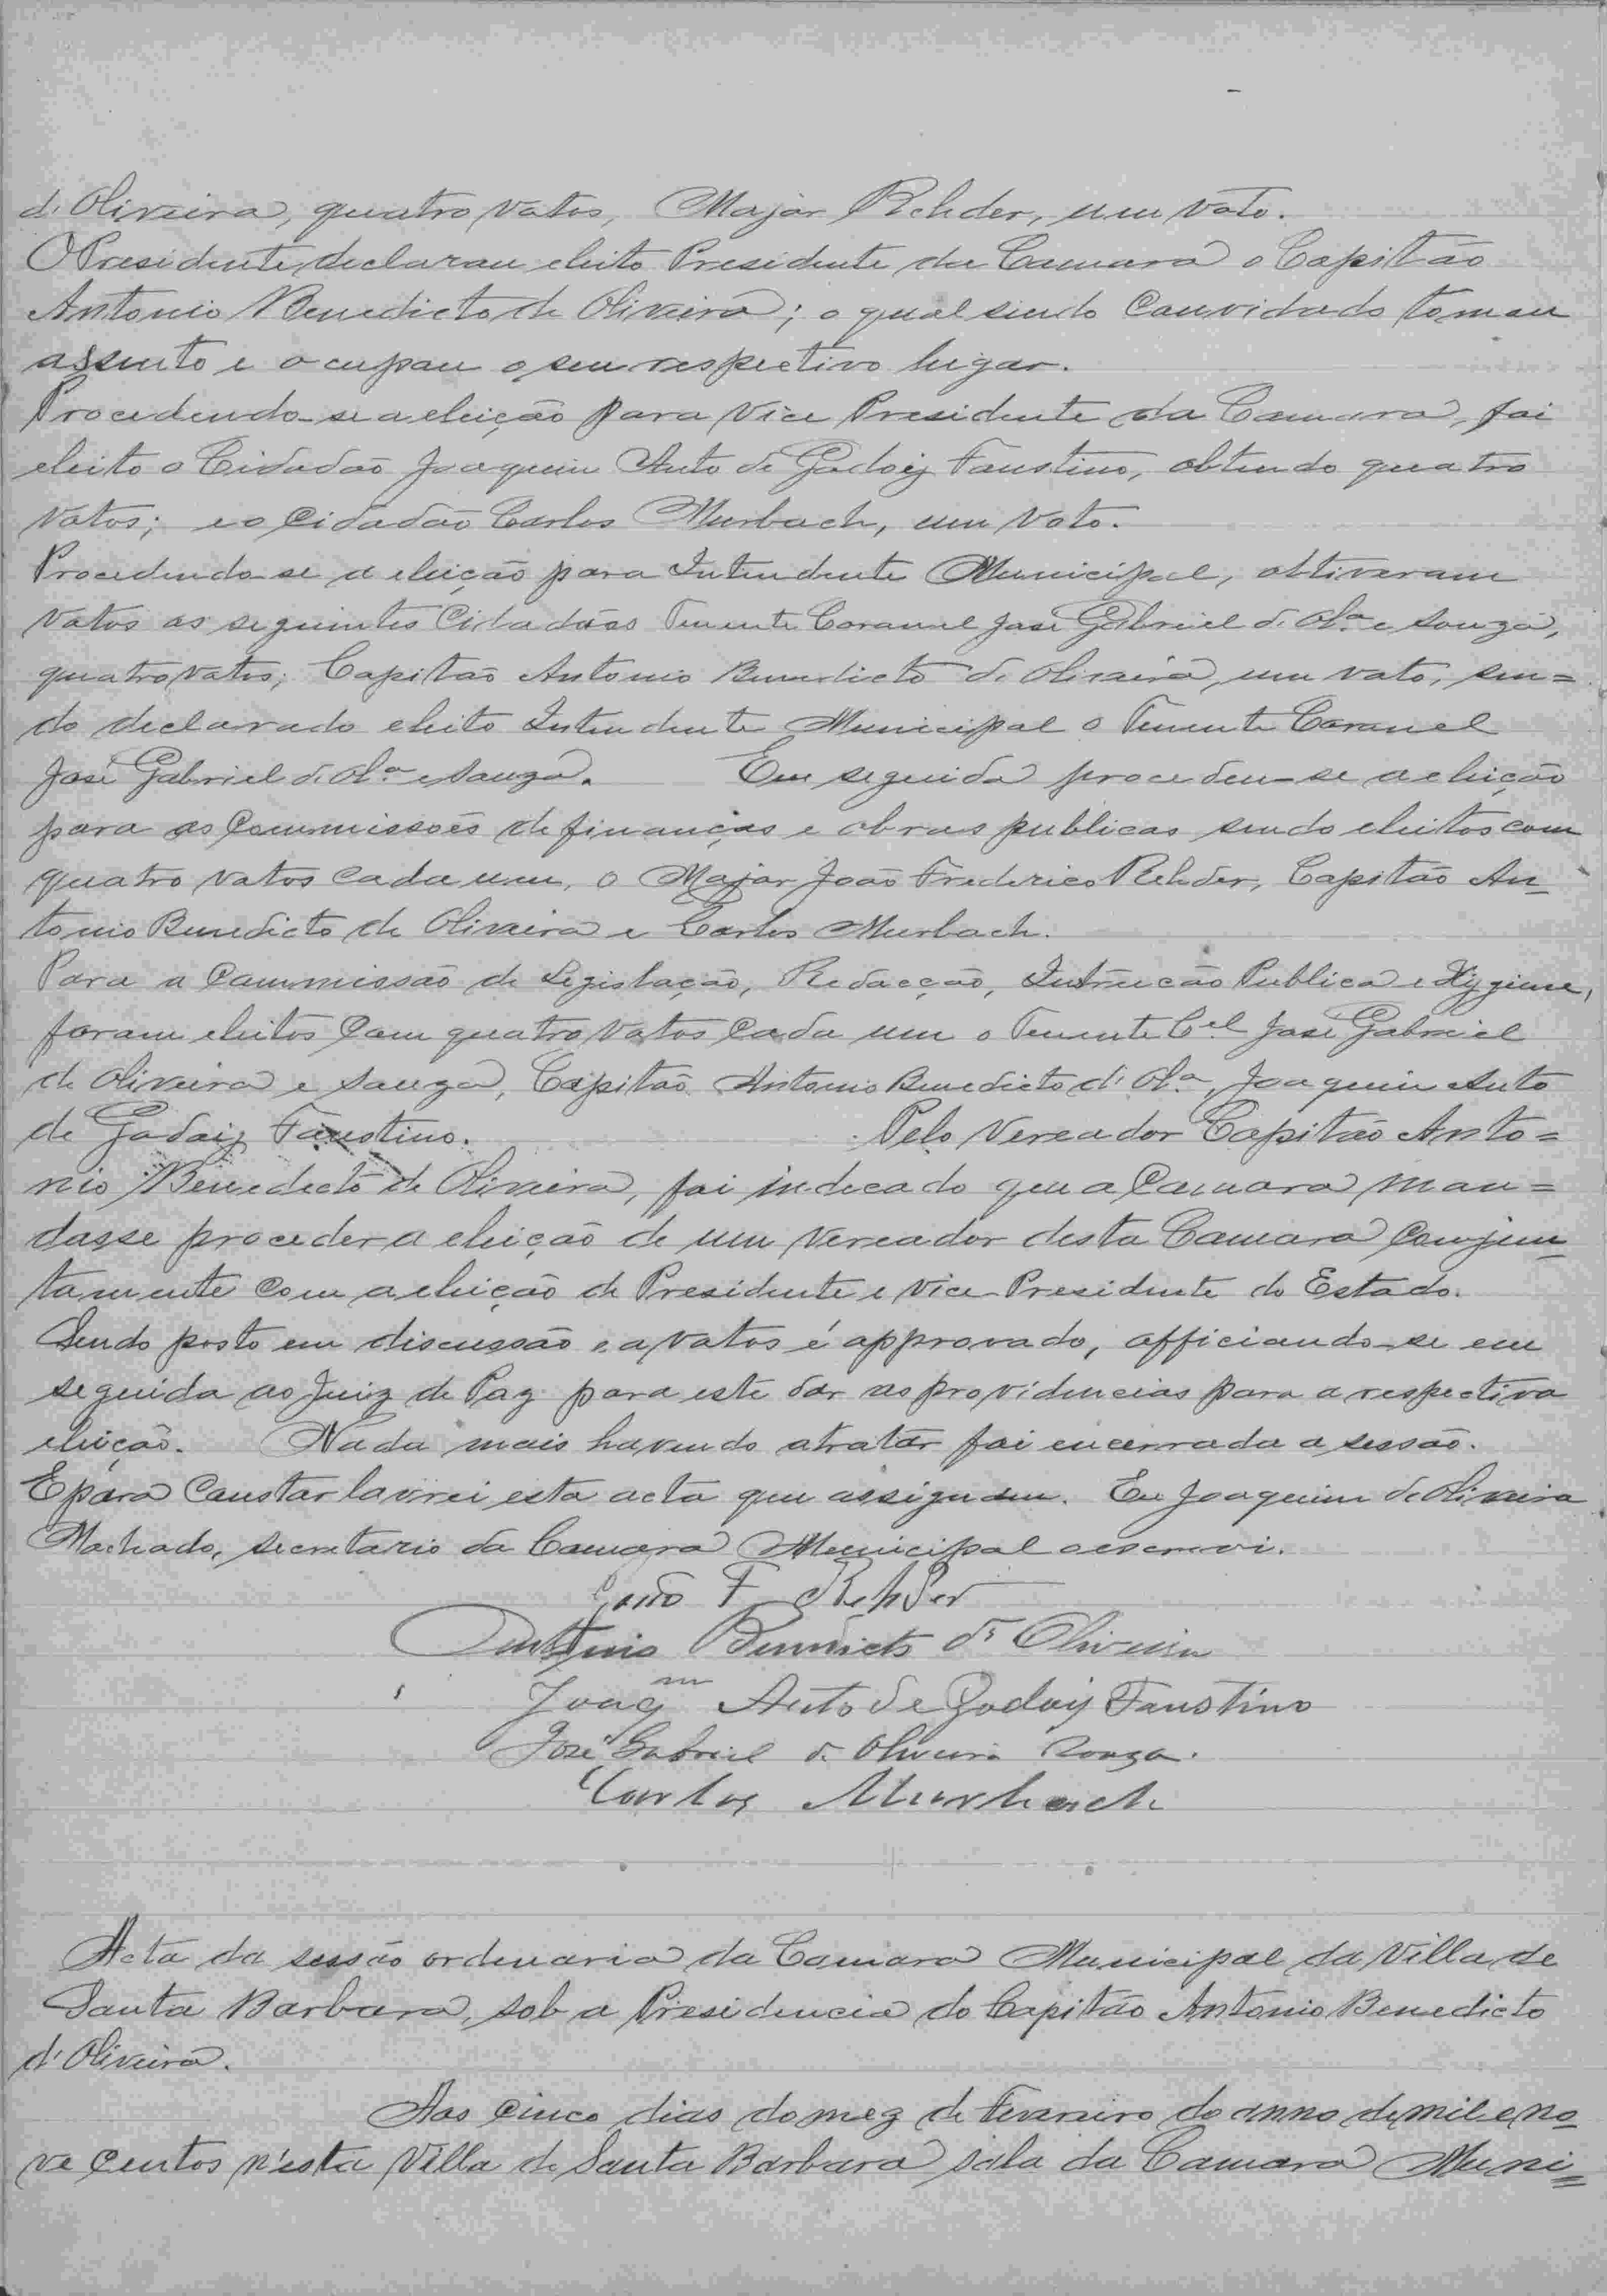 d'Oliveira, quatro votos, Major Rehder, um voto.
O Presidente declarou eleito Presidente da Camara o Capitão
Antonio Benedicto de Oliveira; o qual sendo Convidado tomou
assento e occupou o seu respectivo lugar.
Procedendo-se a eleição para Vice Presidente da Camara, foi
eleito o Cidadão Joaquim Auto de Godoiz Faustino, obtendo quatro
Votos; e o Cidadão Carlos Murbach, um Voto.
Procedendo-se a eleição para Intendente Municipal, obtiveram
Votos os seguintes Cidadãos Tenente Coronel José Gabriel d'Olª e Souza,
quatro votos; Capitão Antonio Benedicto d'Oliveira, um voto, sen=
do declarado eleito Intendente Municipal o Tenente Coronel
José Gabriel d'Olª e Souza. Em seguida procedeu-se a eleição
para as Commissões de finanças e obras publicas sendo eleitos com
quatro votos cada um, o Major João Frederico Rehder, Capitão An-
tonio Benedicto de Oliveira e Carlos Murbach.
Para a Commissão de Legislação, Redacção, Intrucão Publica e Hygiene,
foram eleitos Com quatro Votos Cada um o Tenente Cel José Gabriel
de Oliveira e Souza, Capitão Antonio Benedicto d'Olª, Joaquim Auto
de Godoiz Faustino. Pelo Vereador Capitão Anto=
nio Benedecto de Oliveira, foi indecado que a Camara man=
dasse proceder a eleição de um Vereador desta Camara Conjun-
tamente Com a eleição de Presidente e Vice-Presidente do Estado.
Sendo posto em discussão e a votos é approvado, officiando-se em
seguida ao Juiz de Paz para este dar as providencias para a respectiva
eleição. Nada mais havendo atratar foi encerrada a sessão.
E para Constar lavrei esta acta que assignam. Eu Joaquim de Oliveira
Machado, secretario da Camara Municipal o escrevi.
João F Rehder
Antonio Benedicto de Oliveira
Joaqm Auto de Godoiy Faustino
José Gabriel de Oliveira Souza.
Carlos Murbach
Acta da sessão ordenaria da Camara Municipal da Villa de
Santa Barbara, sob a Presidencia do Capitão Antonio Benedicto
d'Oliveira.
Aos Cinco dias do mez de Fevereiro do anno de mil e no-
ve Centos n'esta Villa de Santa Barbara Sala da Camara Muni=